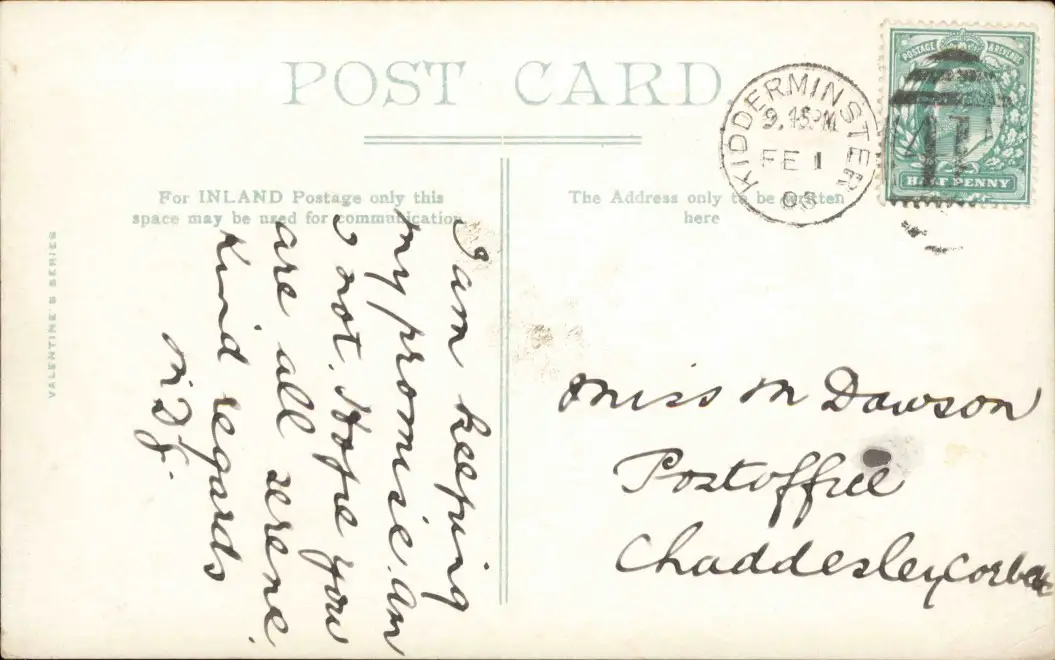 POST CARD
For INLAND Postage only this
space may be used for communication
The Address only to be written
here
VALENTINE'S SERIES
KIDDERMINSTER
9.45PM
FE 1
08
POSTAGE & REVENUE
HALF PENNY
I am keeping
my promise. am
I not. Hope you
are all serene.
Kind regards
Miss M Dawson
Postoffice
Chaddesley Corbett